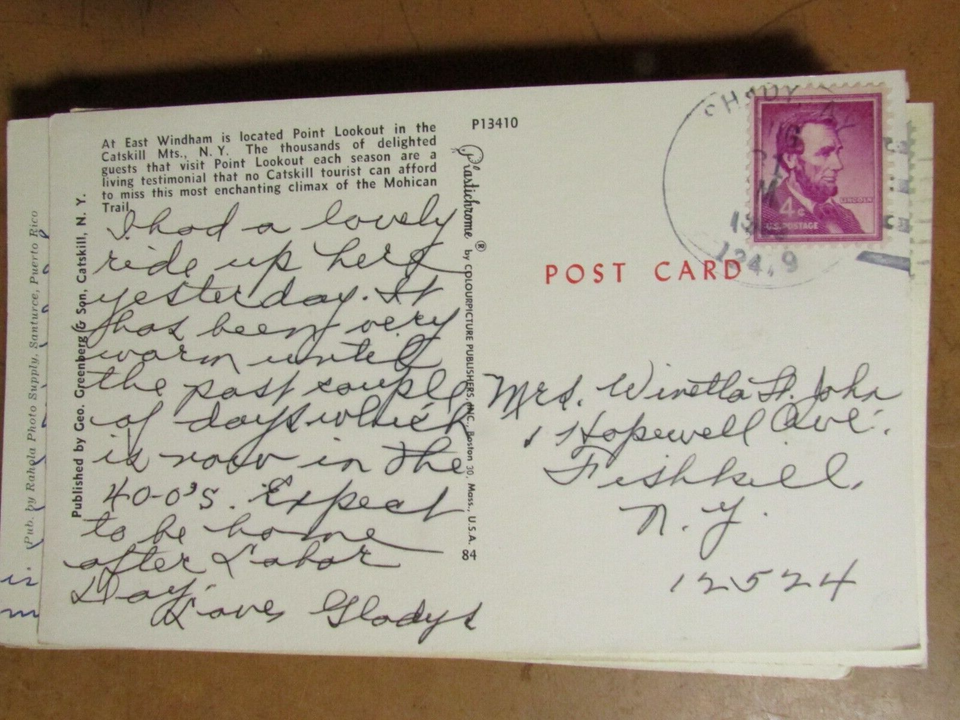 At East Windham is located Point Lookout in the
Catskill Mts., N. Y. The thousands of delighted
guests that visit Point Lookout each season are a
living testimonial that no Catskill tourist can afford
to miss this most enchanting climax of the Mohican
Trail.
I had a lovely
ride up here
yesterday. It
has been very
warm until
the past couple
of days which
is now in the
40-0's. Expect
to be home
after Labor
Day.
Love, Gladys
Published by Geo. Greenberg & Son, Catskill, N. Y.
Pub. by Rahola Photo Supply, Santurce, Puerto Rico
P13410
Plastichrome ® by COLOURPICTURE PUBLISHERS, INC., Boston 30, Mass., U.S.A.
84
POST CARD
SHADY
12419
4¢
LINCOLN
U.S. POSTAGE
Mrs. St. John
1 Hopewell Ave.
Fishkill,
N. Y.
12524